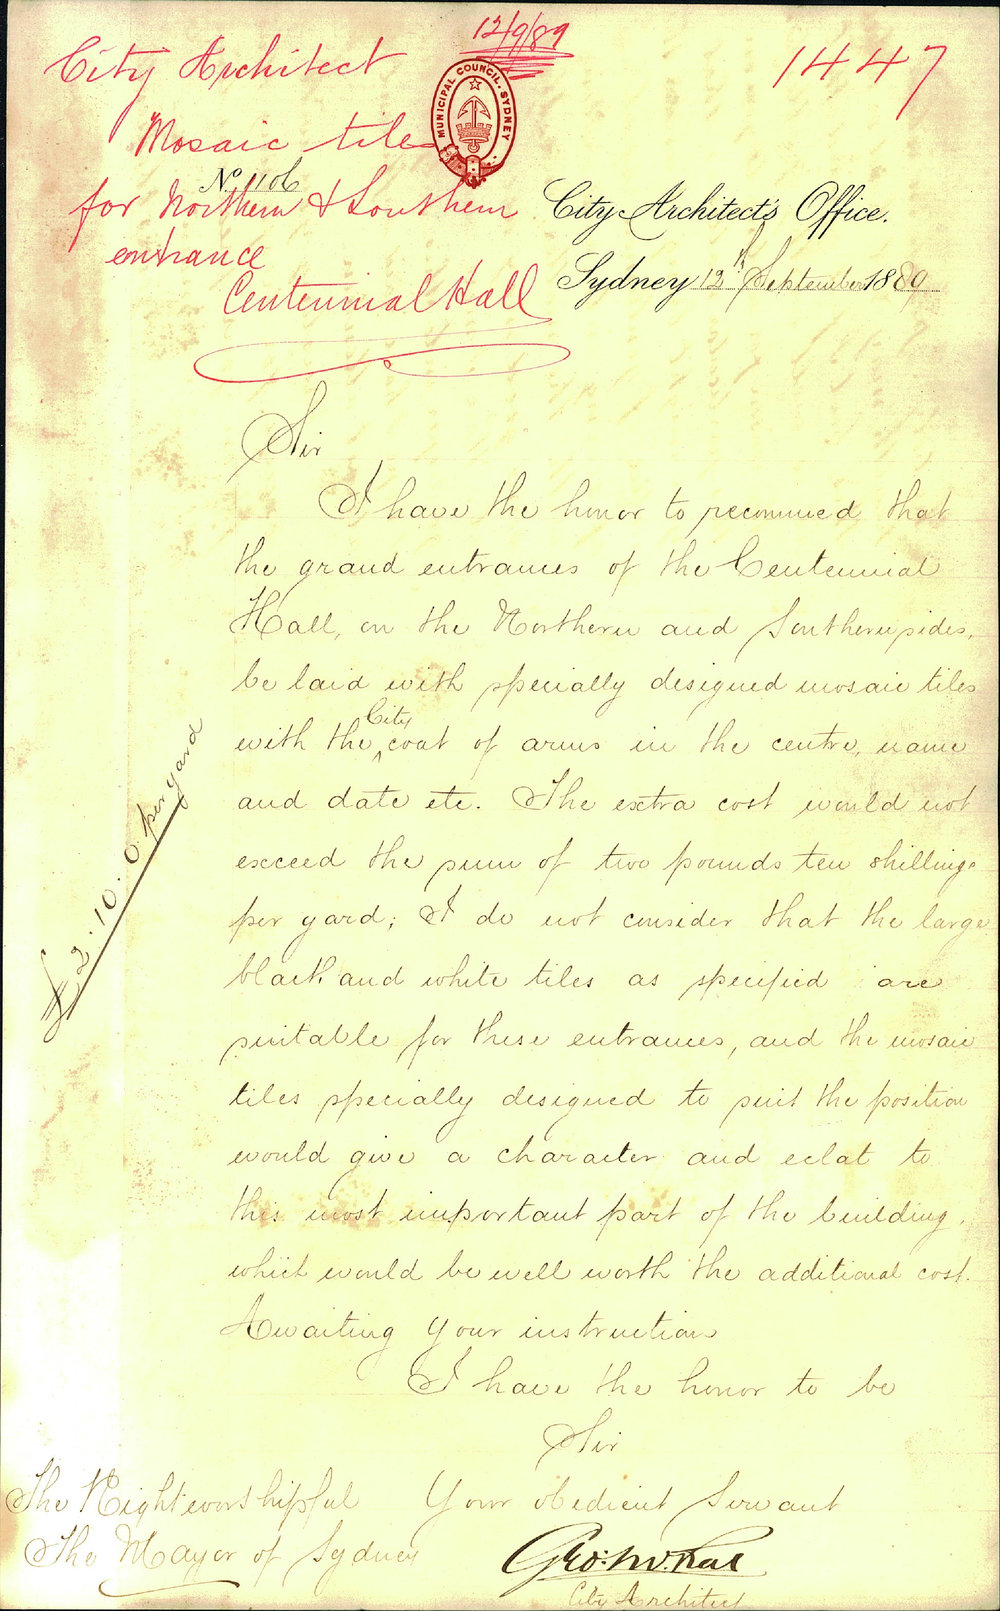 12/9/89
1447
City Architect
Mosaic tile
for Northern & Southern
entrance
Centennial Hall
MUNICIPAL COUNCIL. SYDNEY
No. 1106
City Architect's Office.
Sydney 12th September 1889
Sir
I have the honor to recommed that
the grand entrances of the Centennial
Hall, on the Northern and Southern sides,
be laid with specially designed mosaic tiles
with the City coat of arms in the centre, name
and date etc. The extra cost would not
exceed the sum of two pounds ten shillings
per yard; I do not consider that the large
black and white tiles as specified are
suitable for these entrances, and the mosaic
tiles specially designed to suit the position
would give a character and eclat to
this most important part of the building,
which would be well worth the additional cost.
Awaiting your instructions
I have the honor to be
Sir
Your obedient Servant
City Architect
The Right worshipful
The Mayor of Sydney
£2.10.0 per yard